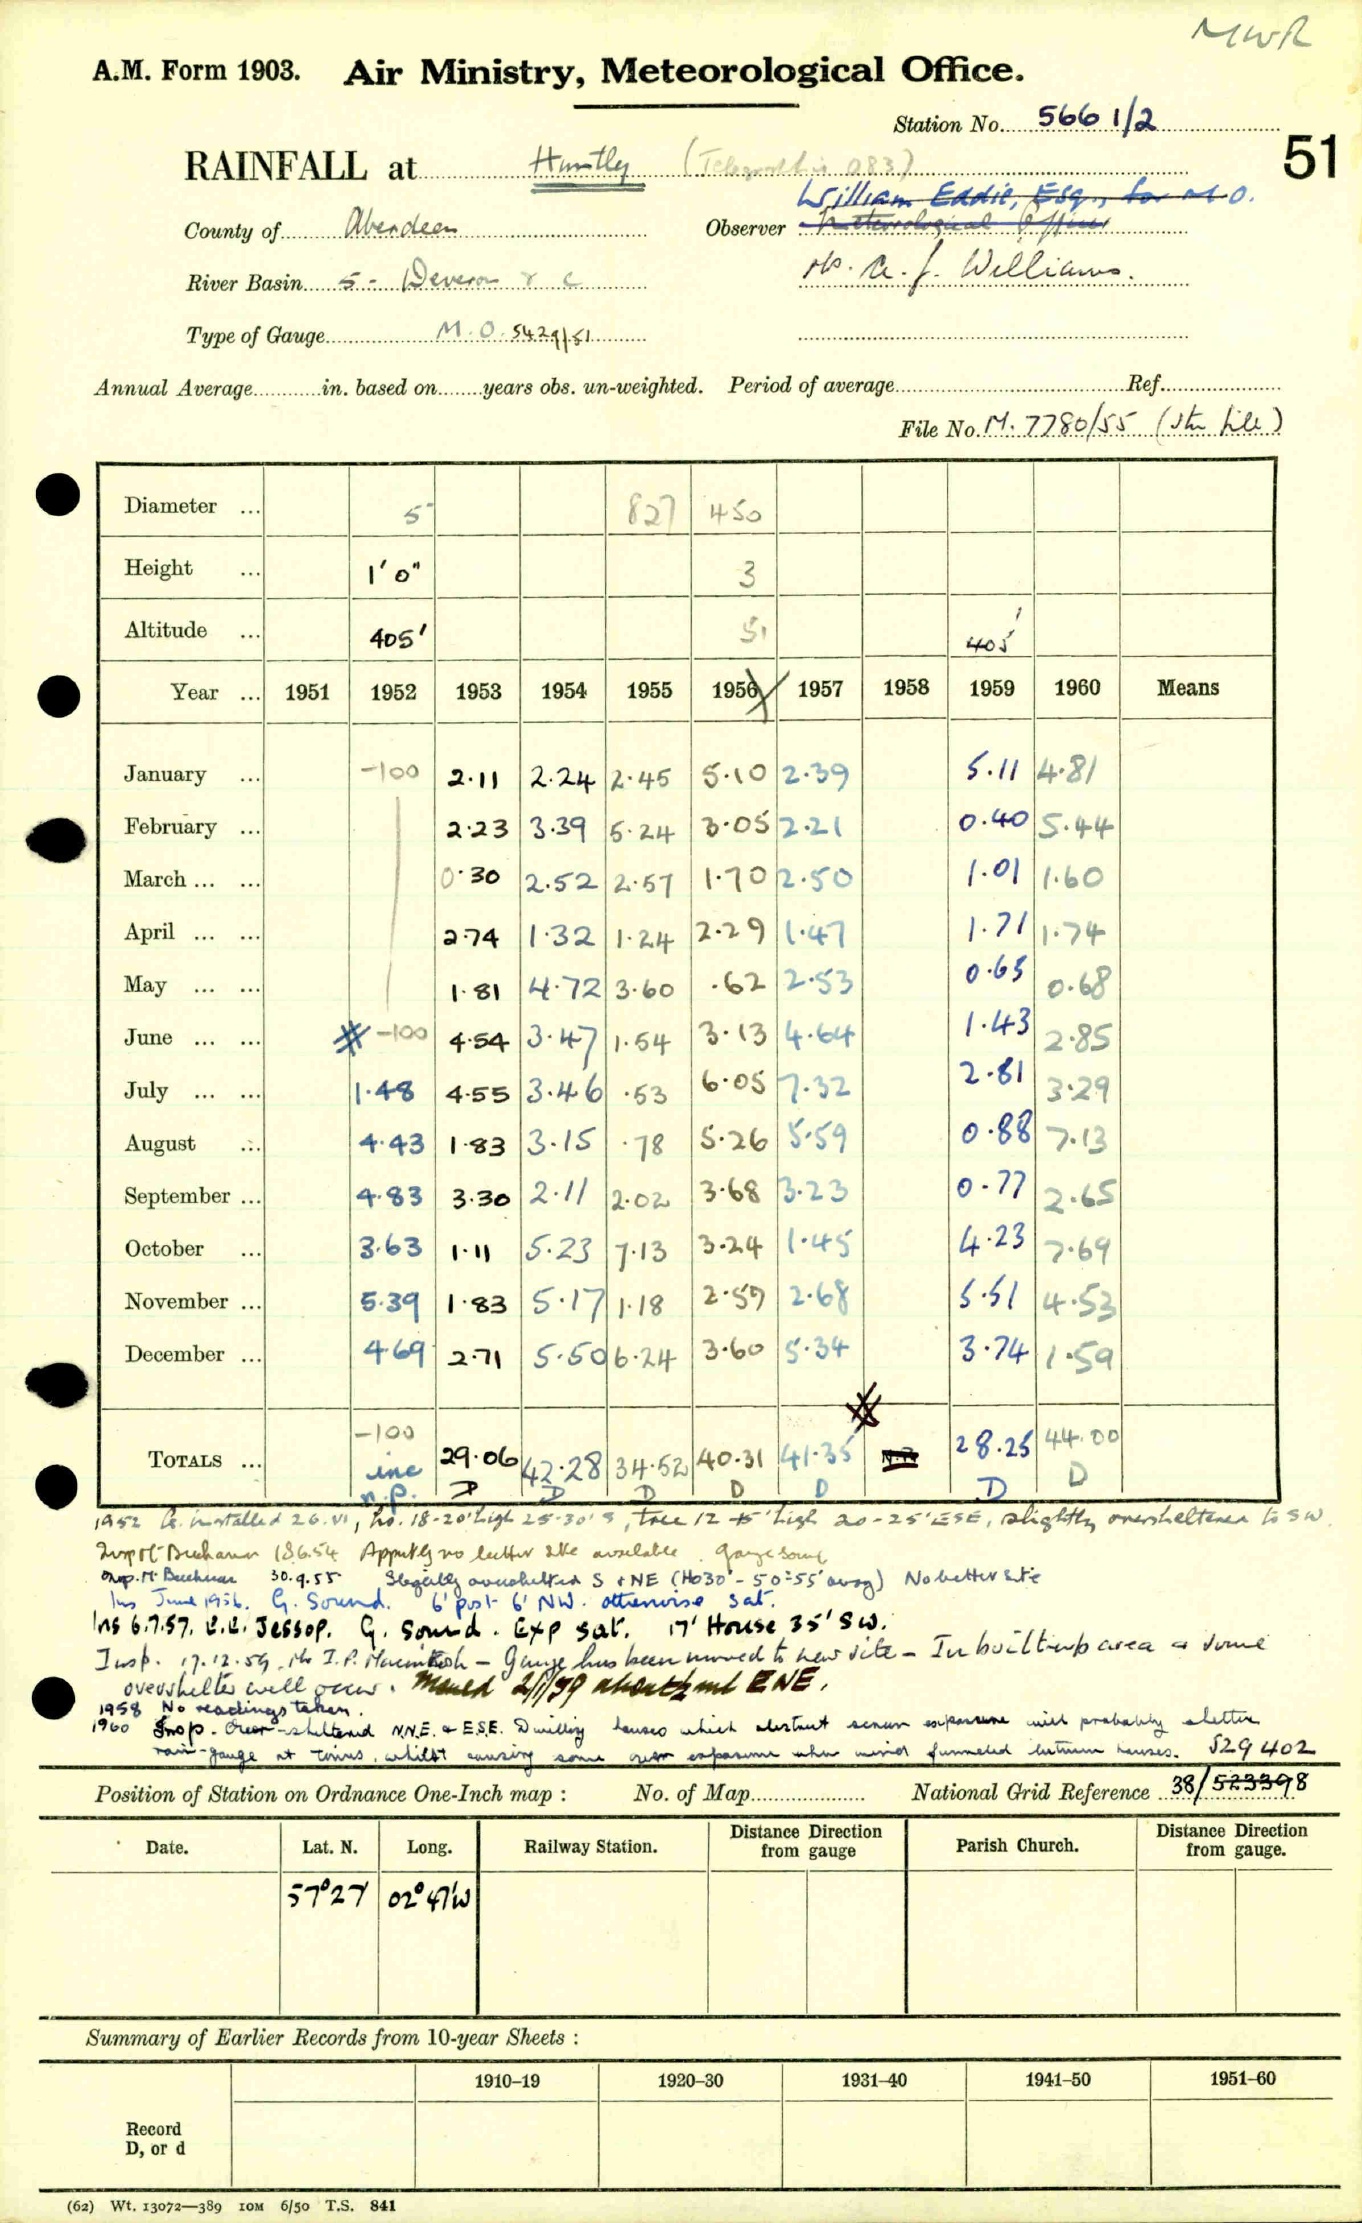 MWR
A.M. Form 1903. Air Ministry, Meteorological Office.
Station No. 566 1/2
51
RAINFALL at Huntly (Telegraphic 083)
William Eddie, Esq., for M.O.
County of Aberdeen Observer Meteorological Officer
River Basin 5 - Deveron & c A. J. Williams.
Type of Gauge M.O. 5429/51
Annual Average in. based on years obs. un-weighted. Period of average Ref.
File No. M. 7780/55 (Stn file)
Diameter ... 5 827 450
Height ... 1' 0" 3
Altitude ... 405' 51 405'
Year ... 1951 1952 1953 1954 1955 1956 1957 1958 1959 1960 Means
January ... -100 2·11 2·24 2·45 5·10 2·39 5·11 4·81
February ... 2·23 3·39 5·24 3·05 2·21 0·40 5·44
March ... ... 0·30 2·52 2·57 1·70 2·50 1·01 1·60
April ... ... 2·74 1·32 1·24 2·29 1·47 1·71 1·74
May ... ... 1·81 4·72 3·60 ·62 2·53 0·65 0·68
June ... ... -100 4·54 3·47 1·54 3·13 4·64 1·43 2·85
July ... ... 1·48 4·55 3·46 ·53 6·05 7·32 2·81 3·29
August ... 4·43 1·83 3·15 ·78 5·26 5·59 0·88 7·13
September ... 4·83 3·30 2·11 2·02 3·68 3·23 0·77 2·65
October ... 3·63 1·11 5·23 7·13 3·24 1·45 4·23 7·69
November ... 5·39 1·83 5·17 1·18 2·59 2·68 5·51 4·53
December ... 4·69 2·71 5·50 6·24 3·60 5·34 3·74 1·59
-100
TOTALS ... inc 29·06 42·28 34·52 40·31 41·35 N.R. 28·25 44·00
n.p. D D D D D D D
1952 G. installed 26.VI, ho. 18-20' high 25-30' S, tree 12-15' high 20-25' ESE, slightly oversheltered to SW.
Insp. Mr Buchanan 18.6.54 Apprtly no better site available. gauge sound
Insp. Mr Buchanan 30.9.55 Slightly oversheltered S & NE (Ho 30' - 50-55' away) No better site
Ins June 1956. G. Sound. 6' post 6' NW. otherwise sat.
Ins 6.7.57. Jessop. G. Sound. Exp sat. 17' House 35' SW.
Insp. 17.12.59. Mr I. P. Macintosh - Gauge has been moved to new site - In built up area & some
overshelter will occur. Moved 2/1/59 about ½ ml ENE.
1958 No readings taken.
1960 Insp. Over-sheltered N.N.E. & E.S.E. Dwelling houses which obstruct sensor exposure will probably shelter
rain-gauge at times, whilst causing some over exposure when wind funneled between houses. 529402
Position of Station on Ordnance One-Inch map : No. of Map National Grid Reference 38/523398
Date. Lat. N. Long. Railway Station. Distance Direction from gauge Parish Church. Distance Direction from gauge.
57°27' 02°47'W
Summary of Earlier Records from 10-year Sheets :
1910–19 1920–30 1931–40 1941–50 1951–60
Record
D, or d
(62) Wt. 13072—389 10M 6/50 T.S. 841